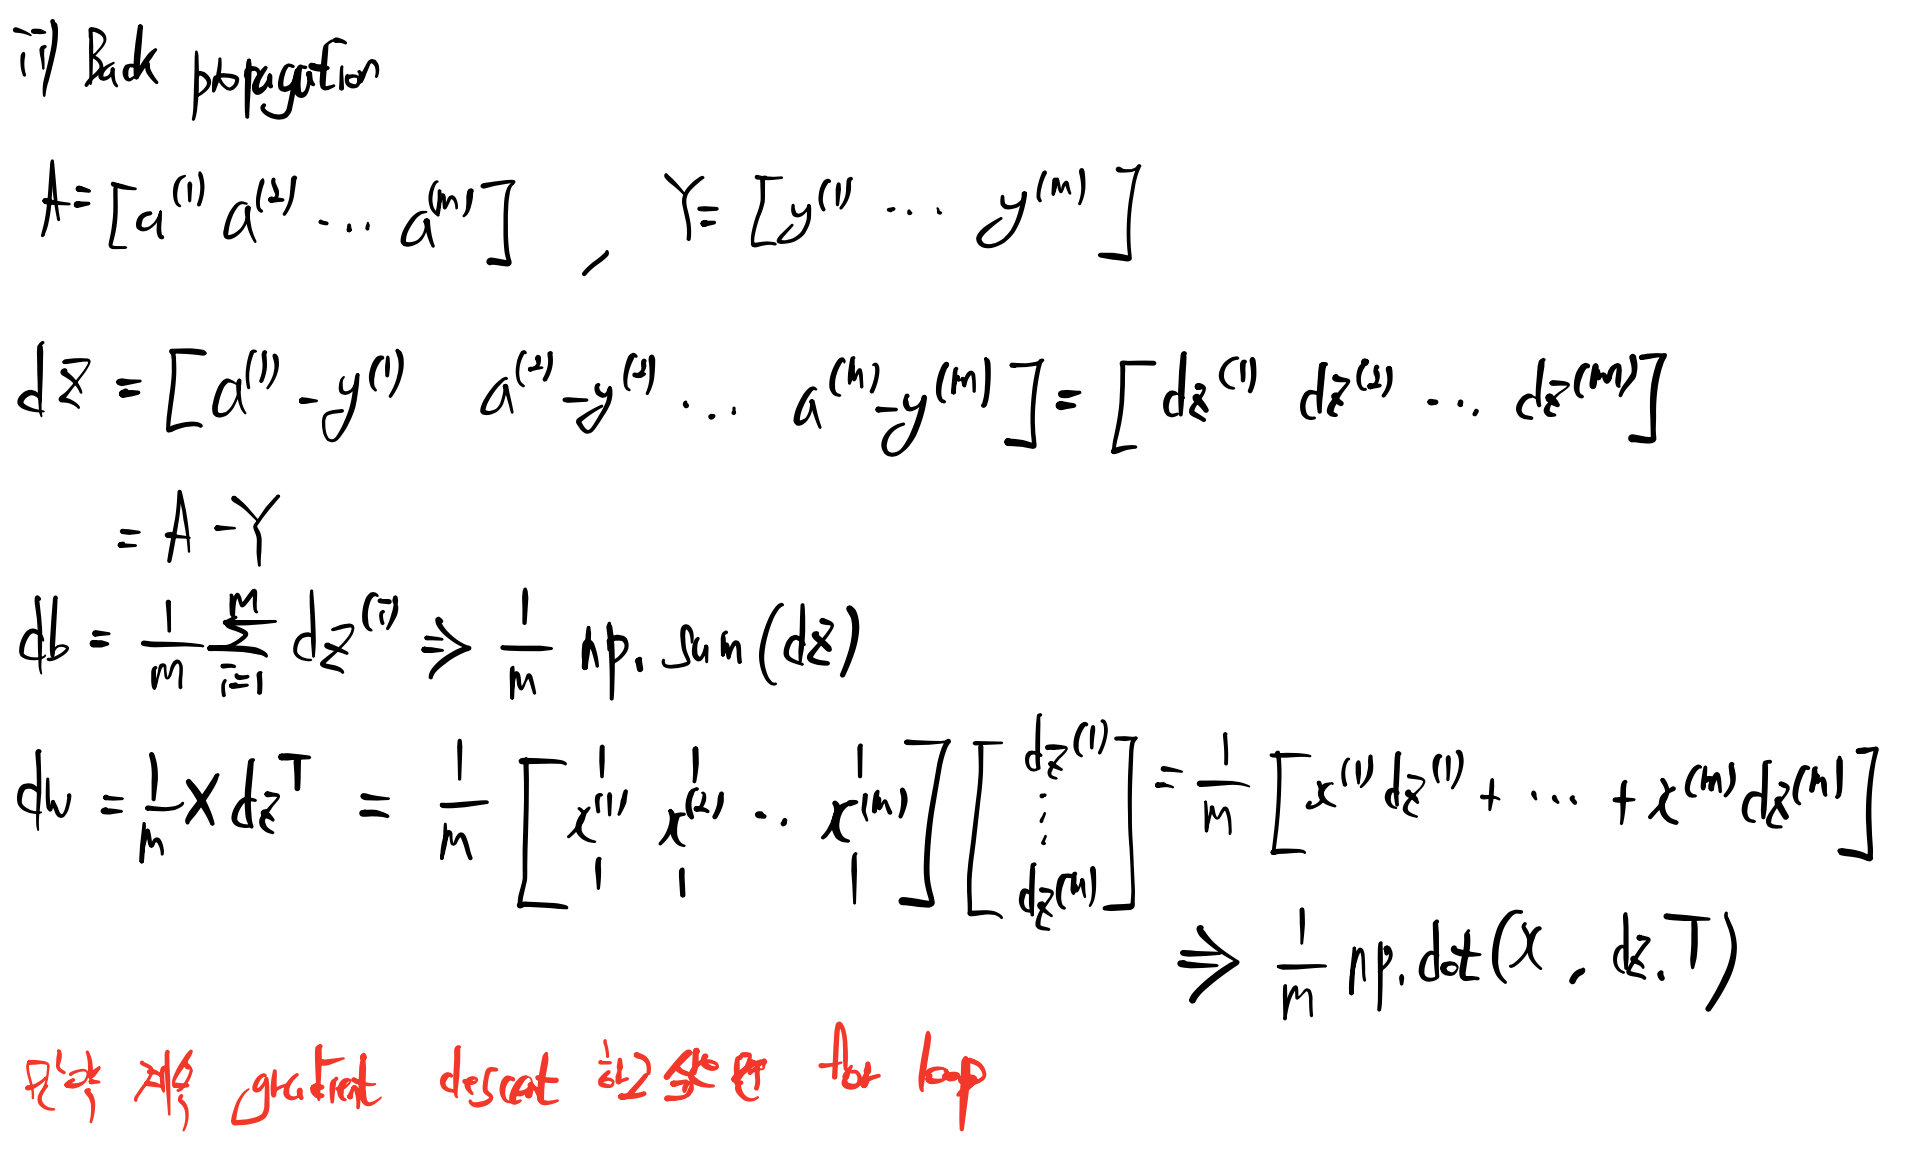 ii) Back propagation
A = [a^(1) a^(2) ... a^(m)] , Y = [y^(1) ... y^(m)]
dz = [a^(1) - y^(1) a^(2) - y^(2) ... a^(m) - y^(m)] = [dz^(1) dz^(2) ... dz^(m)]
= A - Y
db = 1/m Σ_{i=1}^{m} dz^(i) ⇒ 1/m np.sum(dz)
dw = 1/m X dz^T = 1/m [x^(1) x^(2) ... x^(m)] [dz^(1) ⋮ dz^(m)] = 1/m [x^(1) dz^(1) + ... + x^(m) dz^(m)]
⇒ 1/m np.dot(X, dz.T)
gradient descent for loop